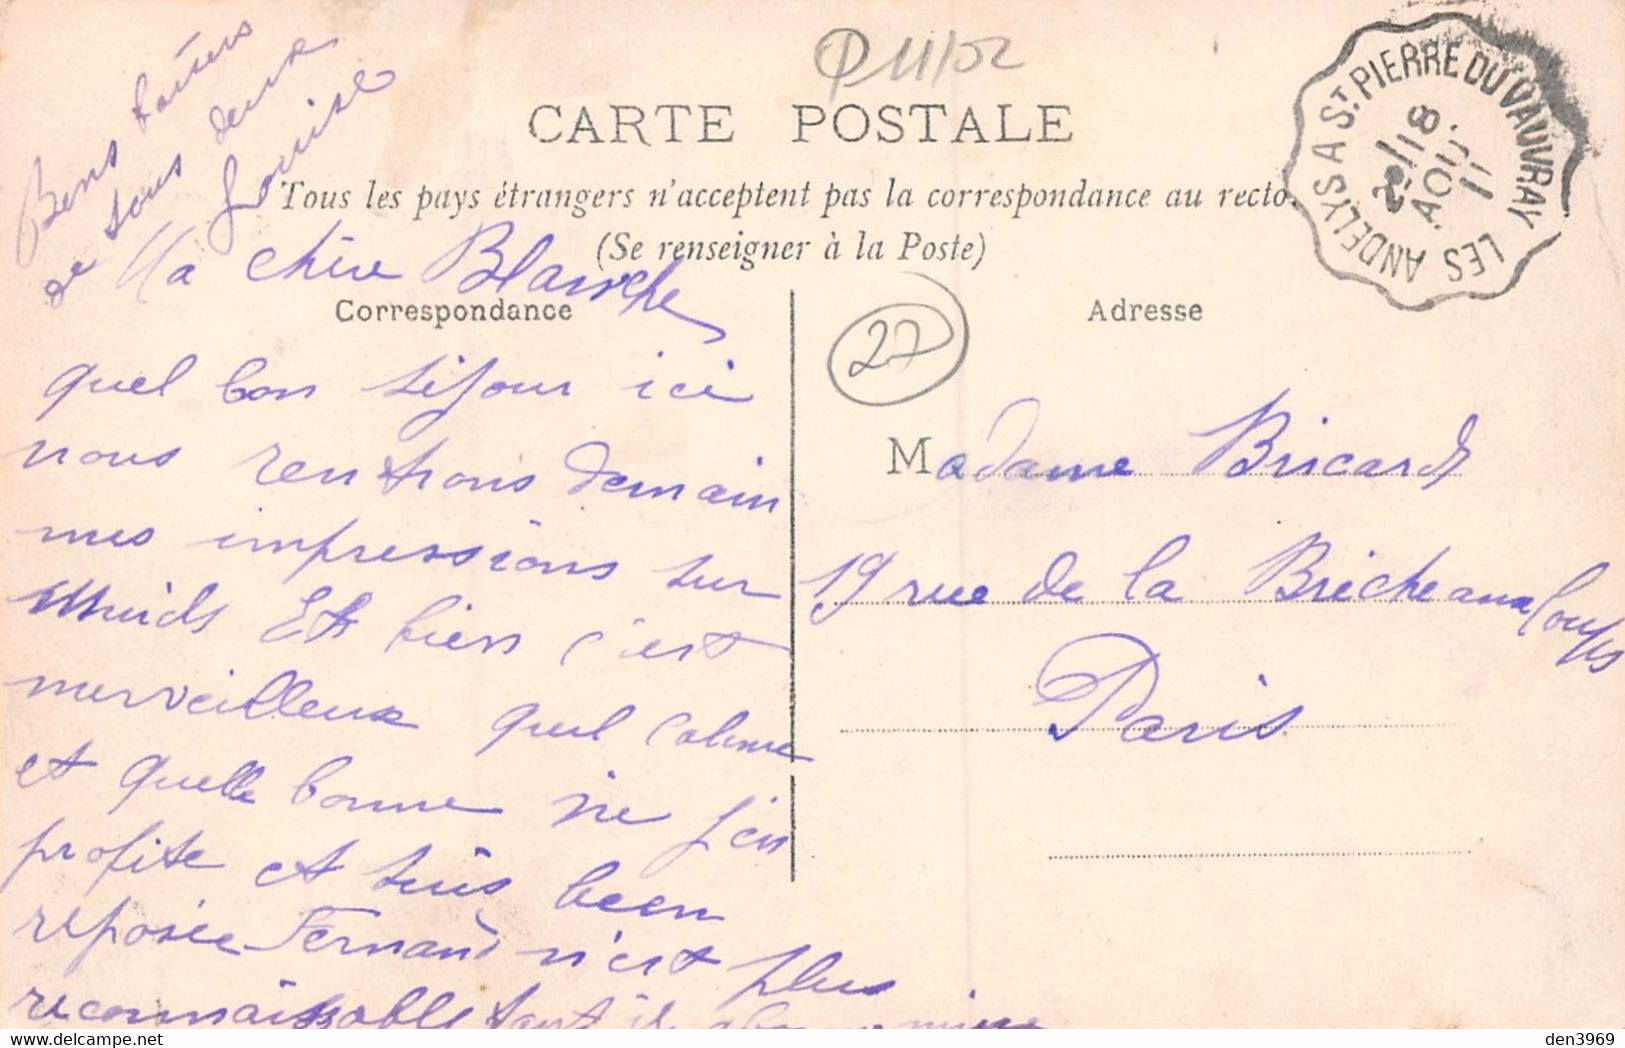 Bons baisers
de tous deux
Louise
11/02
CARTE POSTALE
Tous les pays étrangers n'acceptent pas la correspondance au recto.
(Se renseigner à la Poste)
LES ANDELYS A ST. PIERRE DU VAUVRAY
18
AOUT
11
Correspondance
Adresse
27
Ma chère Blanche
quel bon séjour ici
nous rentrons demain
mes impressions sur
Muids Eh bien c'est
merveilleux quel calme
et quelle bonne vie j'en
profite et suis bien
reposée Fernand n'est plus
reconnaissable tant il a bonne mine
Madame Bricard
19 rue de la Brèche aux Loups
Paris
den3969